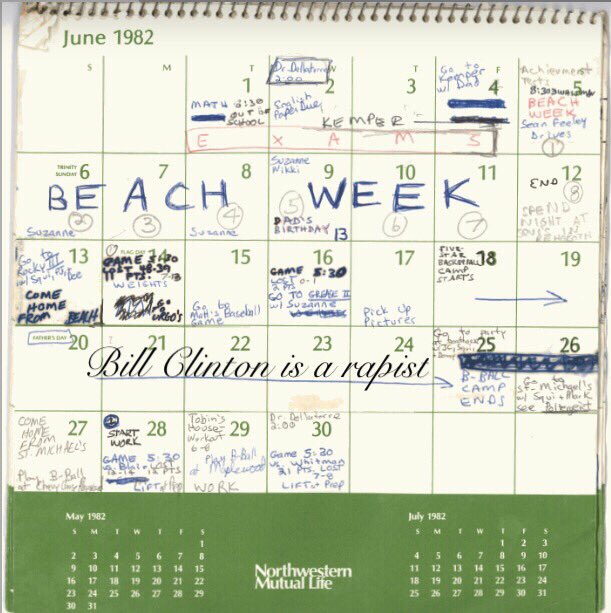 June 1982
S M T W T F S
1 2 3 4 5
Dr. Dellatorre
2:00
Go to
Kemper
w/ Dad
Achievement
Tests
8:30
BEACH
WEEK
Sean Feeley
①
MATH 8:30
OUT OF
SCHOOL
English
Paper Due
KEMPER
EXAMS
TRINITY
SUNDAY 6 7 8 9 10 11 12
Suzanne
Nikki
BEACH WEEK
② ③ ④ ⑤ ⑥ ⑦ ⑧
Suzanne
Suzanne
DAD'S
BIRTHDAY 13
END
SPEND
NIGHT
AT
13 14 15 16 17 18 19
FLAG DAY
Go to
Rocky III
COME
HOME
FROM BEACH
GAME 5:30
LOST 48-39
11 PTS. 7-13
WEIGHTS
Go to
Matt's Baseball
Game
GAME 5:30
LOST 0-1
GO TO GREASE II
w/ Suzanne
Pick Up
Pictures
FIVE-
STAR
BASKETBALL
CAMP
STARTS
FATHER'S DAY 20 21 22 23 24 25 26
Bill Clinton is a rapist
Go to party
B-BALL
CAMP
ENDS
Go to
St. Michael's
w/ Squi + Mark
see Poltergeist
27 28 29 30
COME
HOME
FROM
ST. MICHAEL'S
Play B-Ball
START
WORK
GAME 5:30
vs. Blair
LIFT at Prep
Tobin's
House
Workout
6-8
Play B-Ball
at Maplewood
WORK
Dr. Dellatorre
2:00
Game 5:30
vs. Whitman
21 PTS. LOST
7-8
LIFT at Prep
May 1982
S M T W T F S
1
2 3 4 5 6 7 8
9 10 11 12 13 14 15
16 17 18 19 20 21 22
23 24 25 26 27 28 29
30 31
Northwestern
Mutual Life
July 1982
S M T W T F S
1 2 3
4 5 6 7 8 9 10
11 12 13 14 15 16 17
18 19 20 21 22 23 24
25 26 27 28 29 30 31